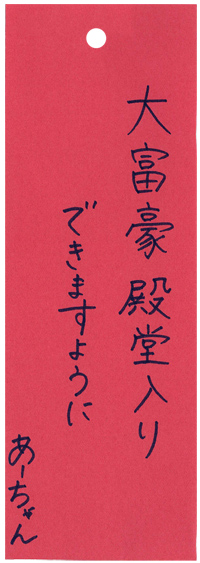 大富豪殿堂入り
できますように
あーちゃん